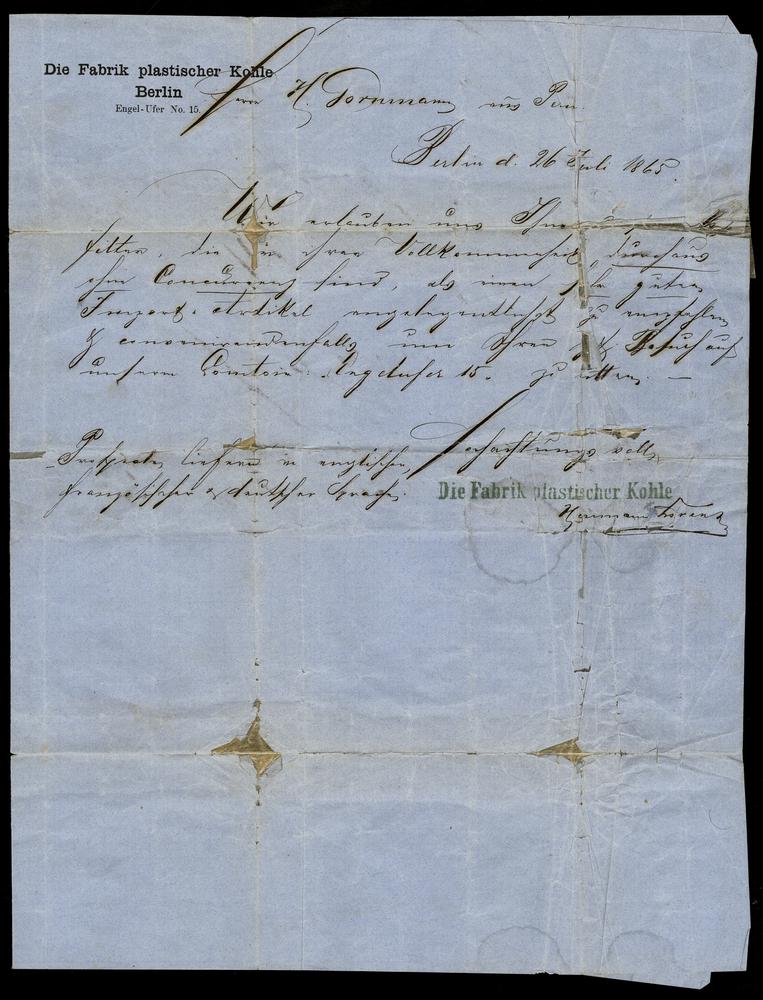 Die Fabrik plastischer Kohle
Berlin
Engel-Ufer No. 15.
Herrn H. Dornmann aus Peru.
Berlin d. 26 Juli 1865.
Wir erlauben uns Ihnen
filter, die in ihrer Vollkommenheit durchaus
ohne Concurrenz sind, als einen sehr guten
Import-Artikel angelegentlichst zu empfehlen
& convenirendenfalls um Ihren Besuch auf
unserm Comtoir: Engelufer 15. zu bitten. —
Achtungsvoll
Prospecte liefern in englischer,
französischer & deutscher Sprache.
Die Fabrik plastischer Kohle
Hermann Lorenz